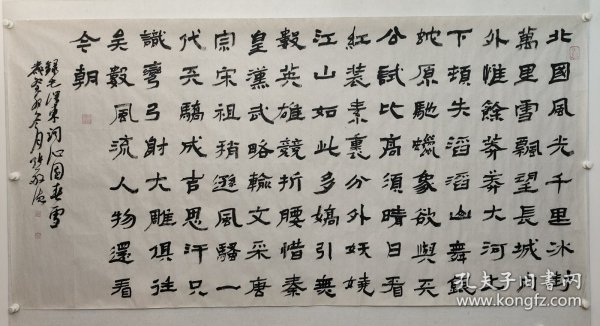 北國風光千里冰封
萬里雪飄望長城内
外惟餘莽莽大河上
下頓失滔滔山舞銀
蛇原馳蠟象欲與天
公試比高須晴日看
紅裝素裹分外妖嬈
江山如此多嬌引無
數英雄競折腰惜秦
皇漢武略輸文采唐
宗宋祖稍遜風騷一
代天驕成吉思汗只
識彎弓射大雕俱往
矣數風流人物還看
今朝
錄毛澤東詞沁園春雪
冬月
孔夫子旧书网
www.kongfz.com